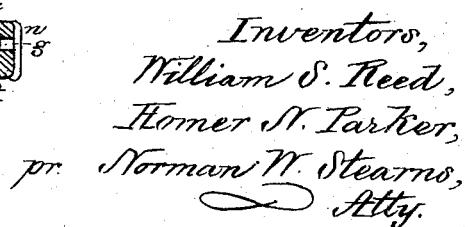 n
g
Inventors,
William S. Reed,
Homer N. Parker,
pr. Norman W. Stearns,
Atty.